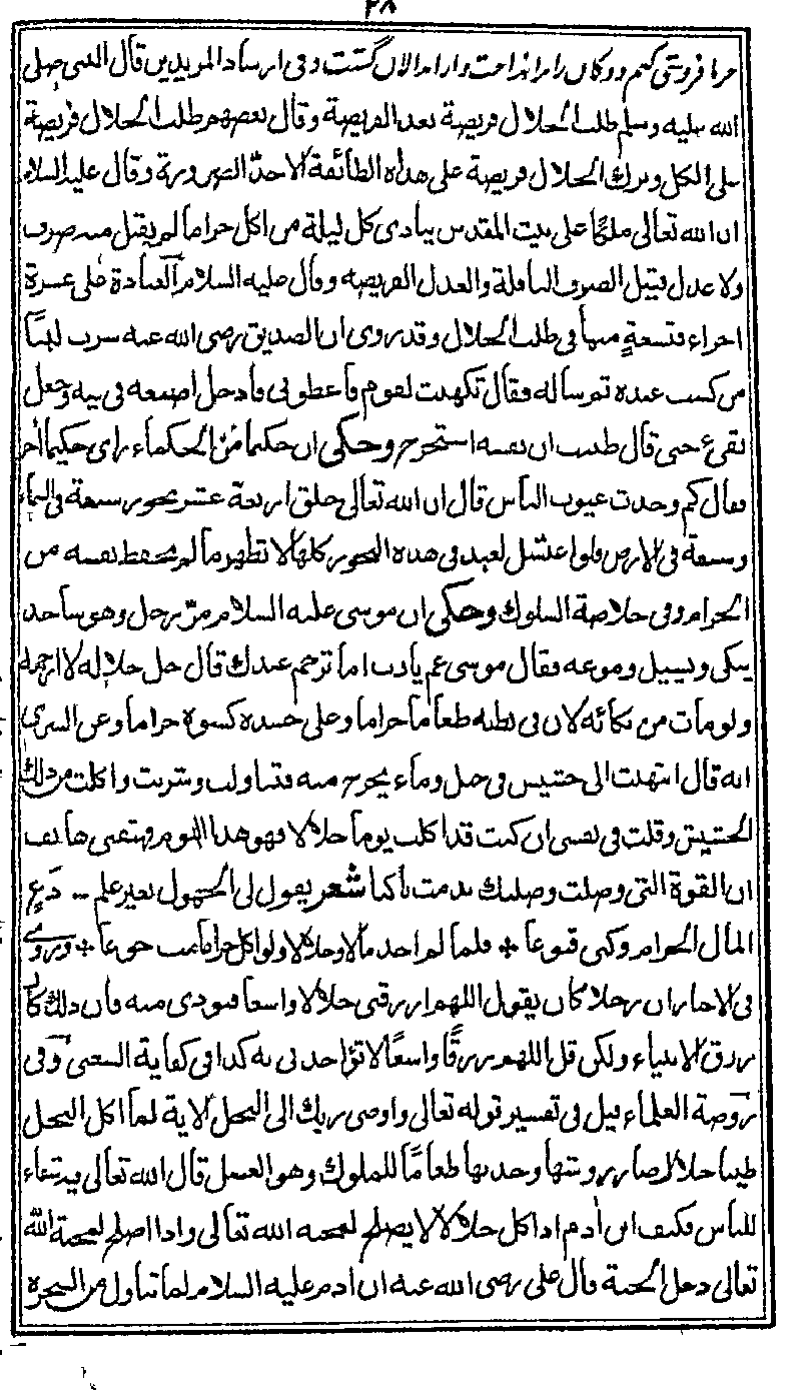 ٣٨
خرما فروشی کنم دوکان را برانداخت وابدالان گشت وفی ارشاد المریدین قال النبی صلی
الله علیه وسلم طلب الحلال فریضة بعد الفریضة وقال بعضهم طلب الحلال فریضة
علی الکل وترك الحلال فریضة علی هذه الطائفة الا حد الضرورة وقال علیه السلام
ان الله تعالی ملکا علی بیت المقدس ینادی کل لیلة من اکل حراما لم یقبل منه صرف
ولا عدل فقیل الصرف النافلة والعدل الفریضه وقال علیه السلام العبادة علی عشرة
اجزاء فتسعة منها فی طلب الحلال وقد روی ان الصدیق رضی الله عنه شرب لبنا
من کسب عبده ثم سأله فقال تکهنت لقوم فاعطونی فادخل اصبعه فی فیه وجعل
یقیء حتی قال ظننت ان نفسه استخرج وحکی ان حکیما من الحکماء رای حکیما آخر
فقال کم وجدت عیوب الناس قال ان الله تعالی خلق اربعة عشر بحور سبعة فی السماء
وسبعة فی الارض فلو اغتسل لعبد فی هذه البحور کلها لا تطهر ما لم یحفظ نفسه من
الحرام وفی خلاصة السلوك وحکی ان موسی علیه السلام مر برجل وهو ساجد
یبکی ویسیل دموعه فقال موسی عم یا رب اما ترحم عبدك قال جل جلاله لا ارحمه
ولو مات من بکائه لان فی بطنه طعاما حراما وعلی جسده کسوة حراما وعن السری
انه قال انتهت الی حشیش فی جبل وماء یخرج منه فتناولت وشربت واکلت من ذلك
الحشیش وقلت فی نفسی ان کنت قد اکلت یوما حلالا فهو هذا الیوم فهتفنی هاتف
ان القوة التی وصلت وصلتك شعر یقول لی الجهول بغیر علم ٠٠ دع
المال الحرام وکن قنوعا * فلما لم اجد مالا وحلالا ولم اکل حراما مت جوعا * وروی
فی الاخبار ان رجلا کان یقول اللهم ارزقنی حلالا واسعا فنودی منه فان ذلك کان
رزق الانبیاء ولکن قل اللهم رزقا واسعا لا تؤاخذنی به کذا فی کفایة الشعبی وفی
روضة العلماء قیل فی تفسیر قوله تعالی واوحی ربك الی النحل الایة لما اکل النحل
طیبا حلالا صار روثها وحدها طعاما للملوك وهو العسل قال الله تعالی فیه شفاء
للناس فکیف ابن آدم اذا اکل حلالا لا یصلح لمحبة الله تعالی واذا اصلح لمحبة الله
تعالی دخل الجنة قال علی رضی الله عنه ان ادم علیه السلام لما تناول من الشجرة